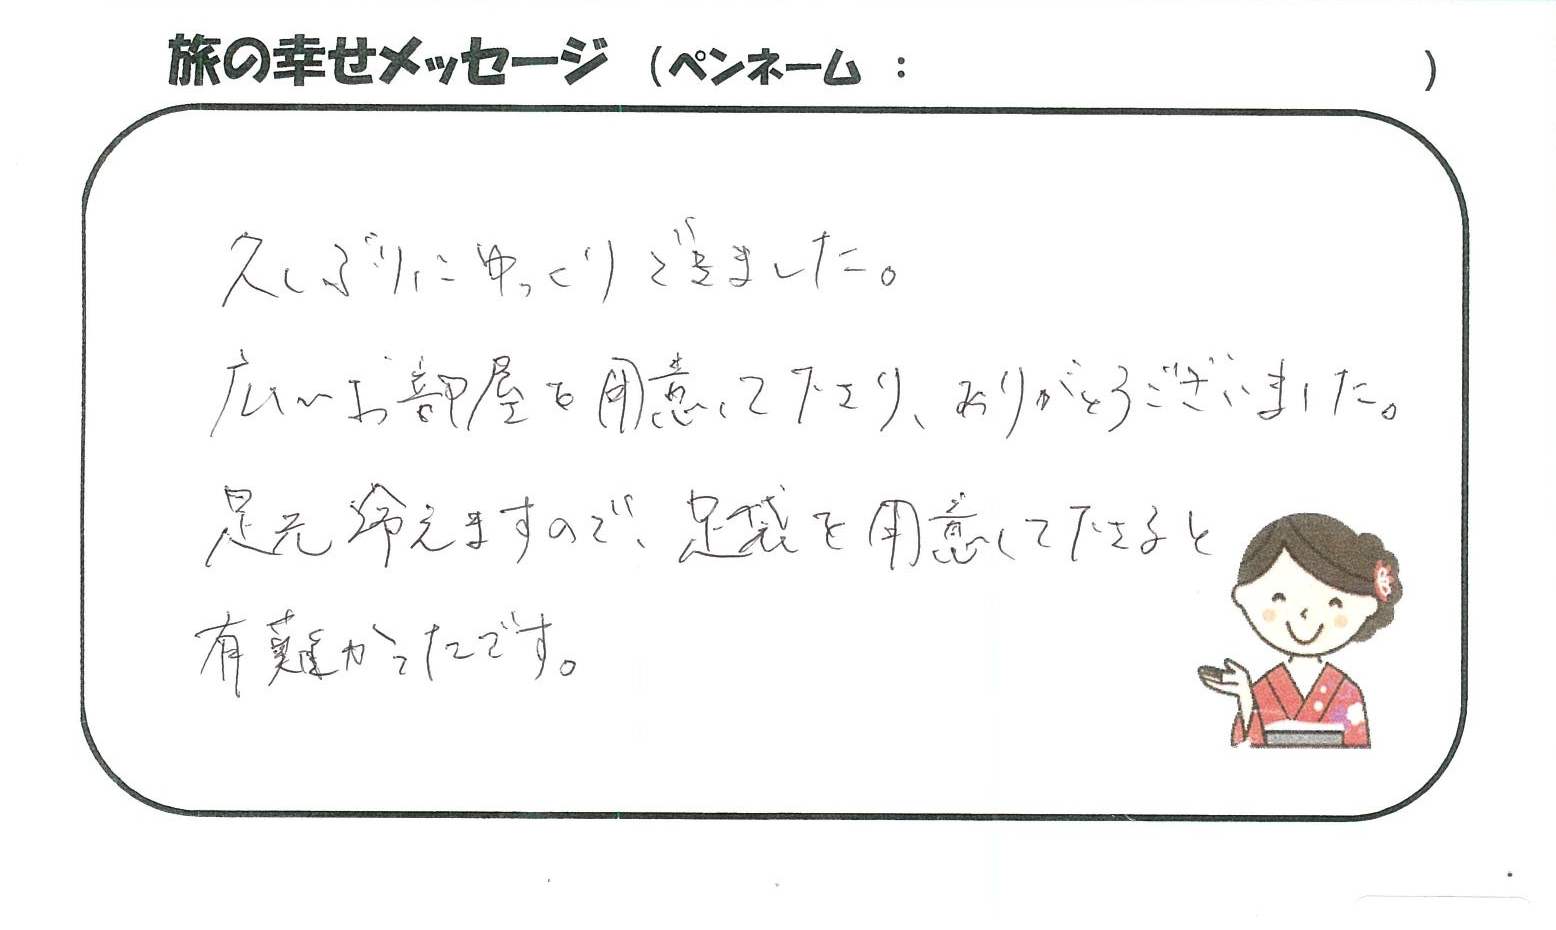 旅の幸せメッセージ （ペンネーム ： ）
久しぶりにゆっくりできました。
広いお部屋を用意して下さり、ありがとうございました。
足元冷えますので、足袋を用意して下さると
有難かったです。